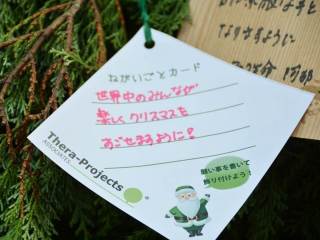 ねがいごとカード
世界中のみんなが
楽しくクリスマスを
すごせますように!
Thera-Projects
ASSOCIATES
願い事を書いて
飾り付けよう!
なりますように